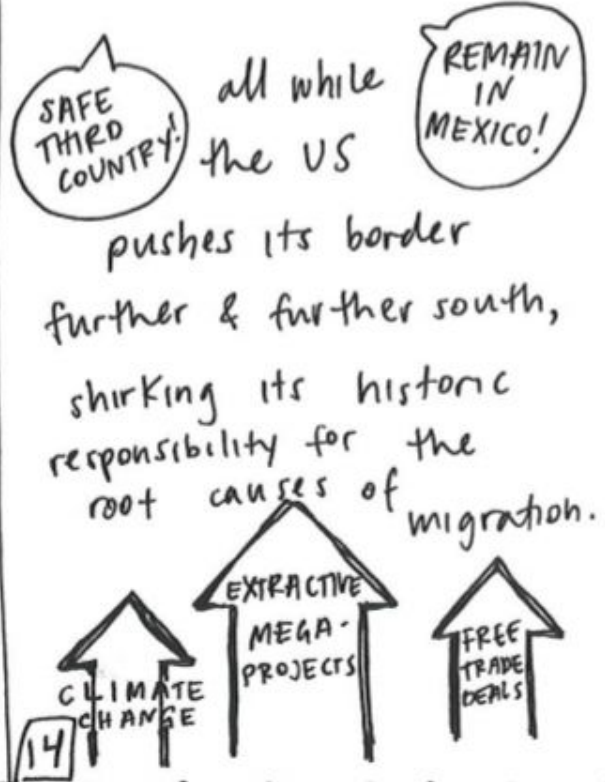 SAFE
THIRD
COUNTRY!
all while
the US
REMAIN
IN
MEXICO!
pushes its border
further & further south,
shirking its historic
responsibility for the
root causes of
migration.
CLIMATE
CHANGE
EXTRACTIVE
MEGA-
PROJECTS
FREE
TRADE
DEALS
14